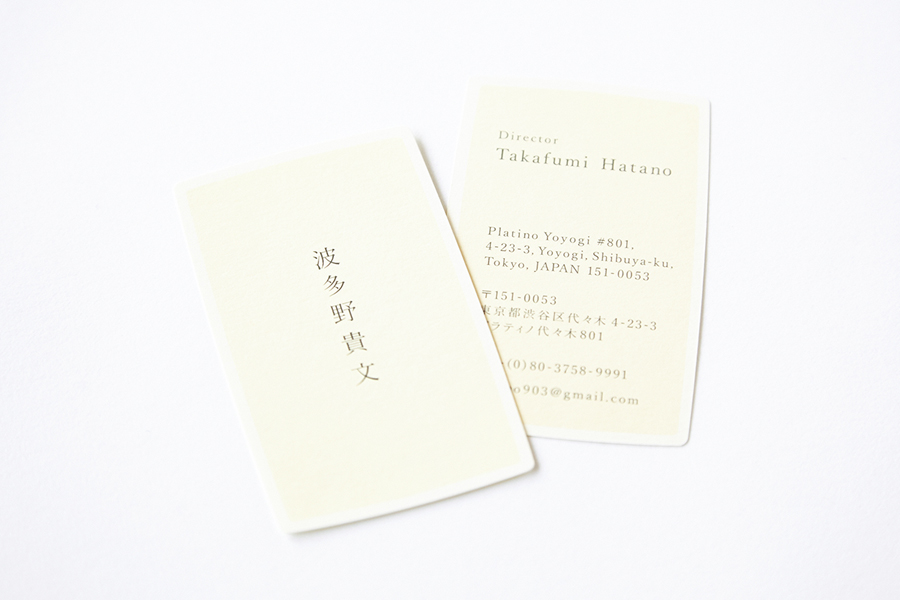 波多野貴文
Director
Takafumi Hatano
Platino Yoyogi #801,
4-23-3, Yoyogi, Shibuya-ku,
Tokyo, JAPAN 151-0053
〒151-0053
東京都渋谷区代々木 4-23-3
ラティノ代々木801
(0)80-3758-9991
o903@gmail.com